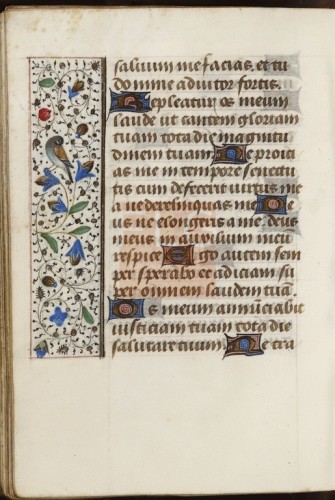 saluum me facias et tu
do mine adiutor fortis.
Repleatur os meum
laude ut cantem gloriam
tuam tota die magnitu
dinem tuam Ne proici
as me in tempore senectu
tis cum defecerit virtus me
a ne derelinquas me De
us ne elongeris a me deus
meus in auxilium meu
respice Ego autem sem
per sperabo et adiciam su
per omnem laudem tuā
Os meum annūciabit
iusticiam tuam tota die
salutare tuum Ne tra